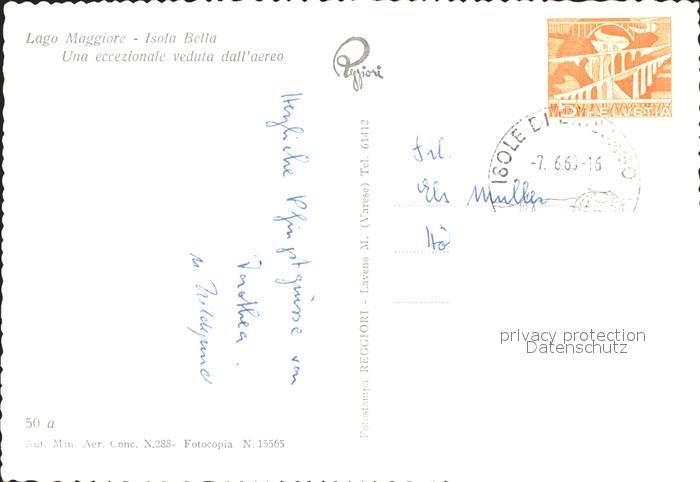 Lago Maggiore - Isola Bella
Una eccezionale veduta dall'aereo
Reggiori
5 HELVETIA
ISOLE DI
-7. 6.60-16
Herzliche Pfingstgrüsse von
Dorothea
u. Hildegund
Frl.
Els Muller
Fotostampa REGGIORI - Laveno M. (Varese) Tel. 61412
privacy protection
Datenschutz
50 a
Aut. Min. Aer. Conc. N.288- Fotocopia N. 15565